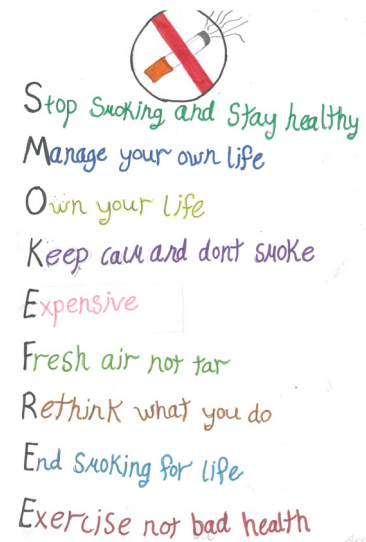 Stop Smoking and Stay healthy
Manage your own life
Own your life
Keep calm and dont smoke
Expensive
Fresh air not tar
Rethink what you do
End smoking for life
Exercise not bad health